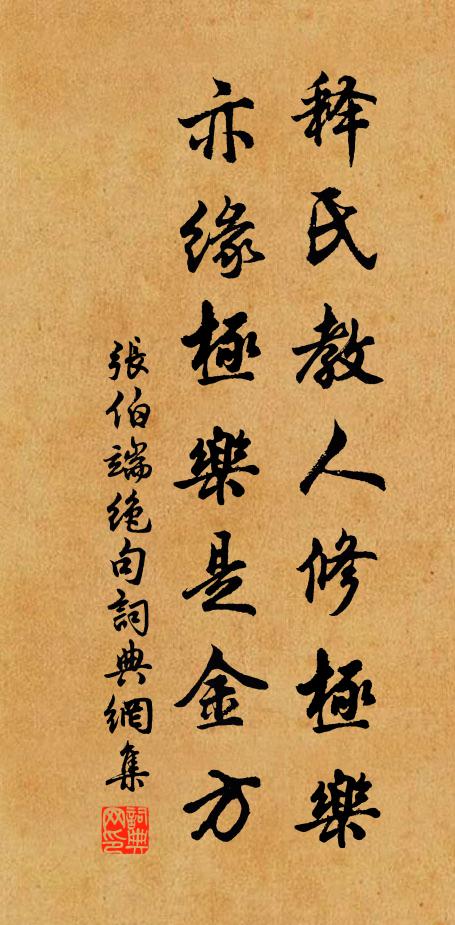 释氏教人修極樂
亦缘極樂是金方
張伯端绝句詞典網集
詞典網印